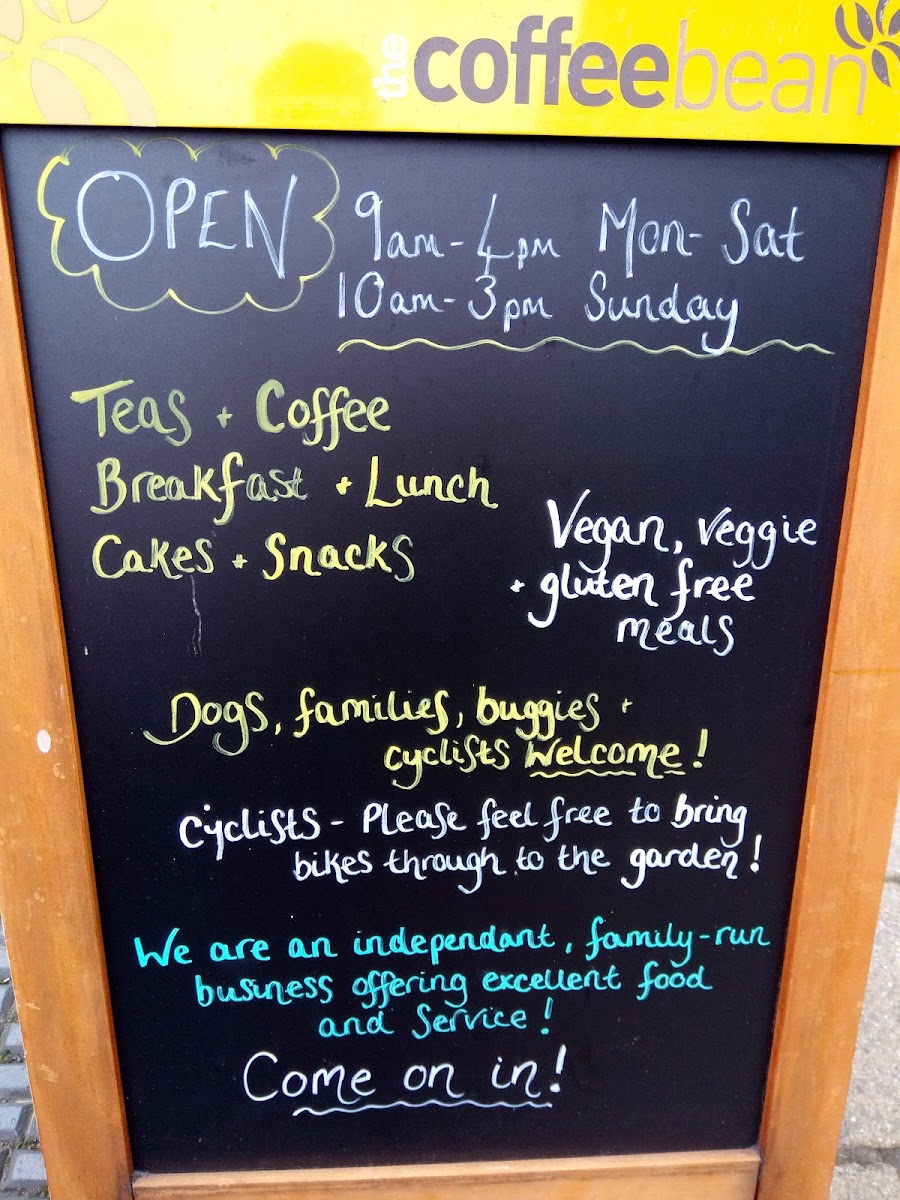 the coffeebean
OPEN 9am-4pm Mon-Sat
10am-3pm Sunday
Teas + Coffee
Breakfast + Lunch
Cakes + Snacks
Vegan, veggie
+ gluten free
meals
Dogs, families, buggies +
cyclists Welcome!
Cyclists - Please feel free to bring
bikes through to the garden!
We are an independant, family-run
business offering excellent food
and service!
Come on in!